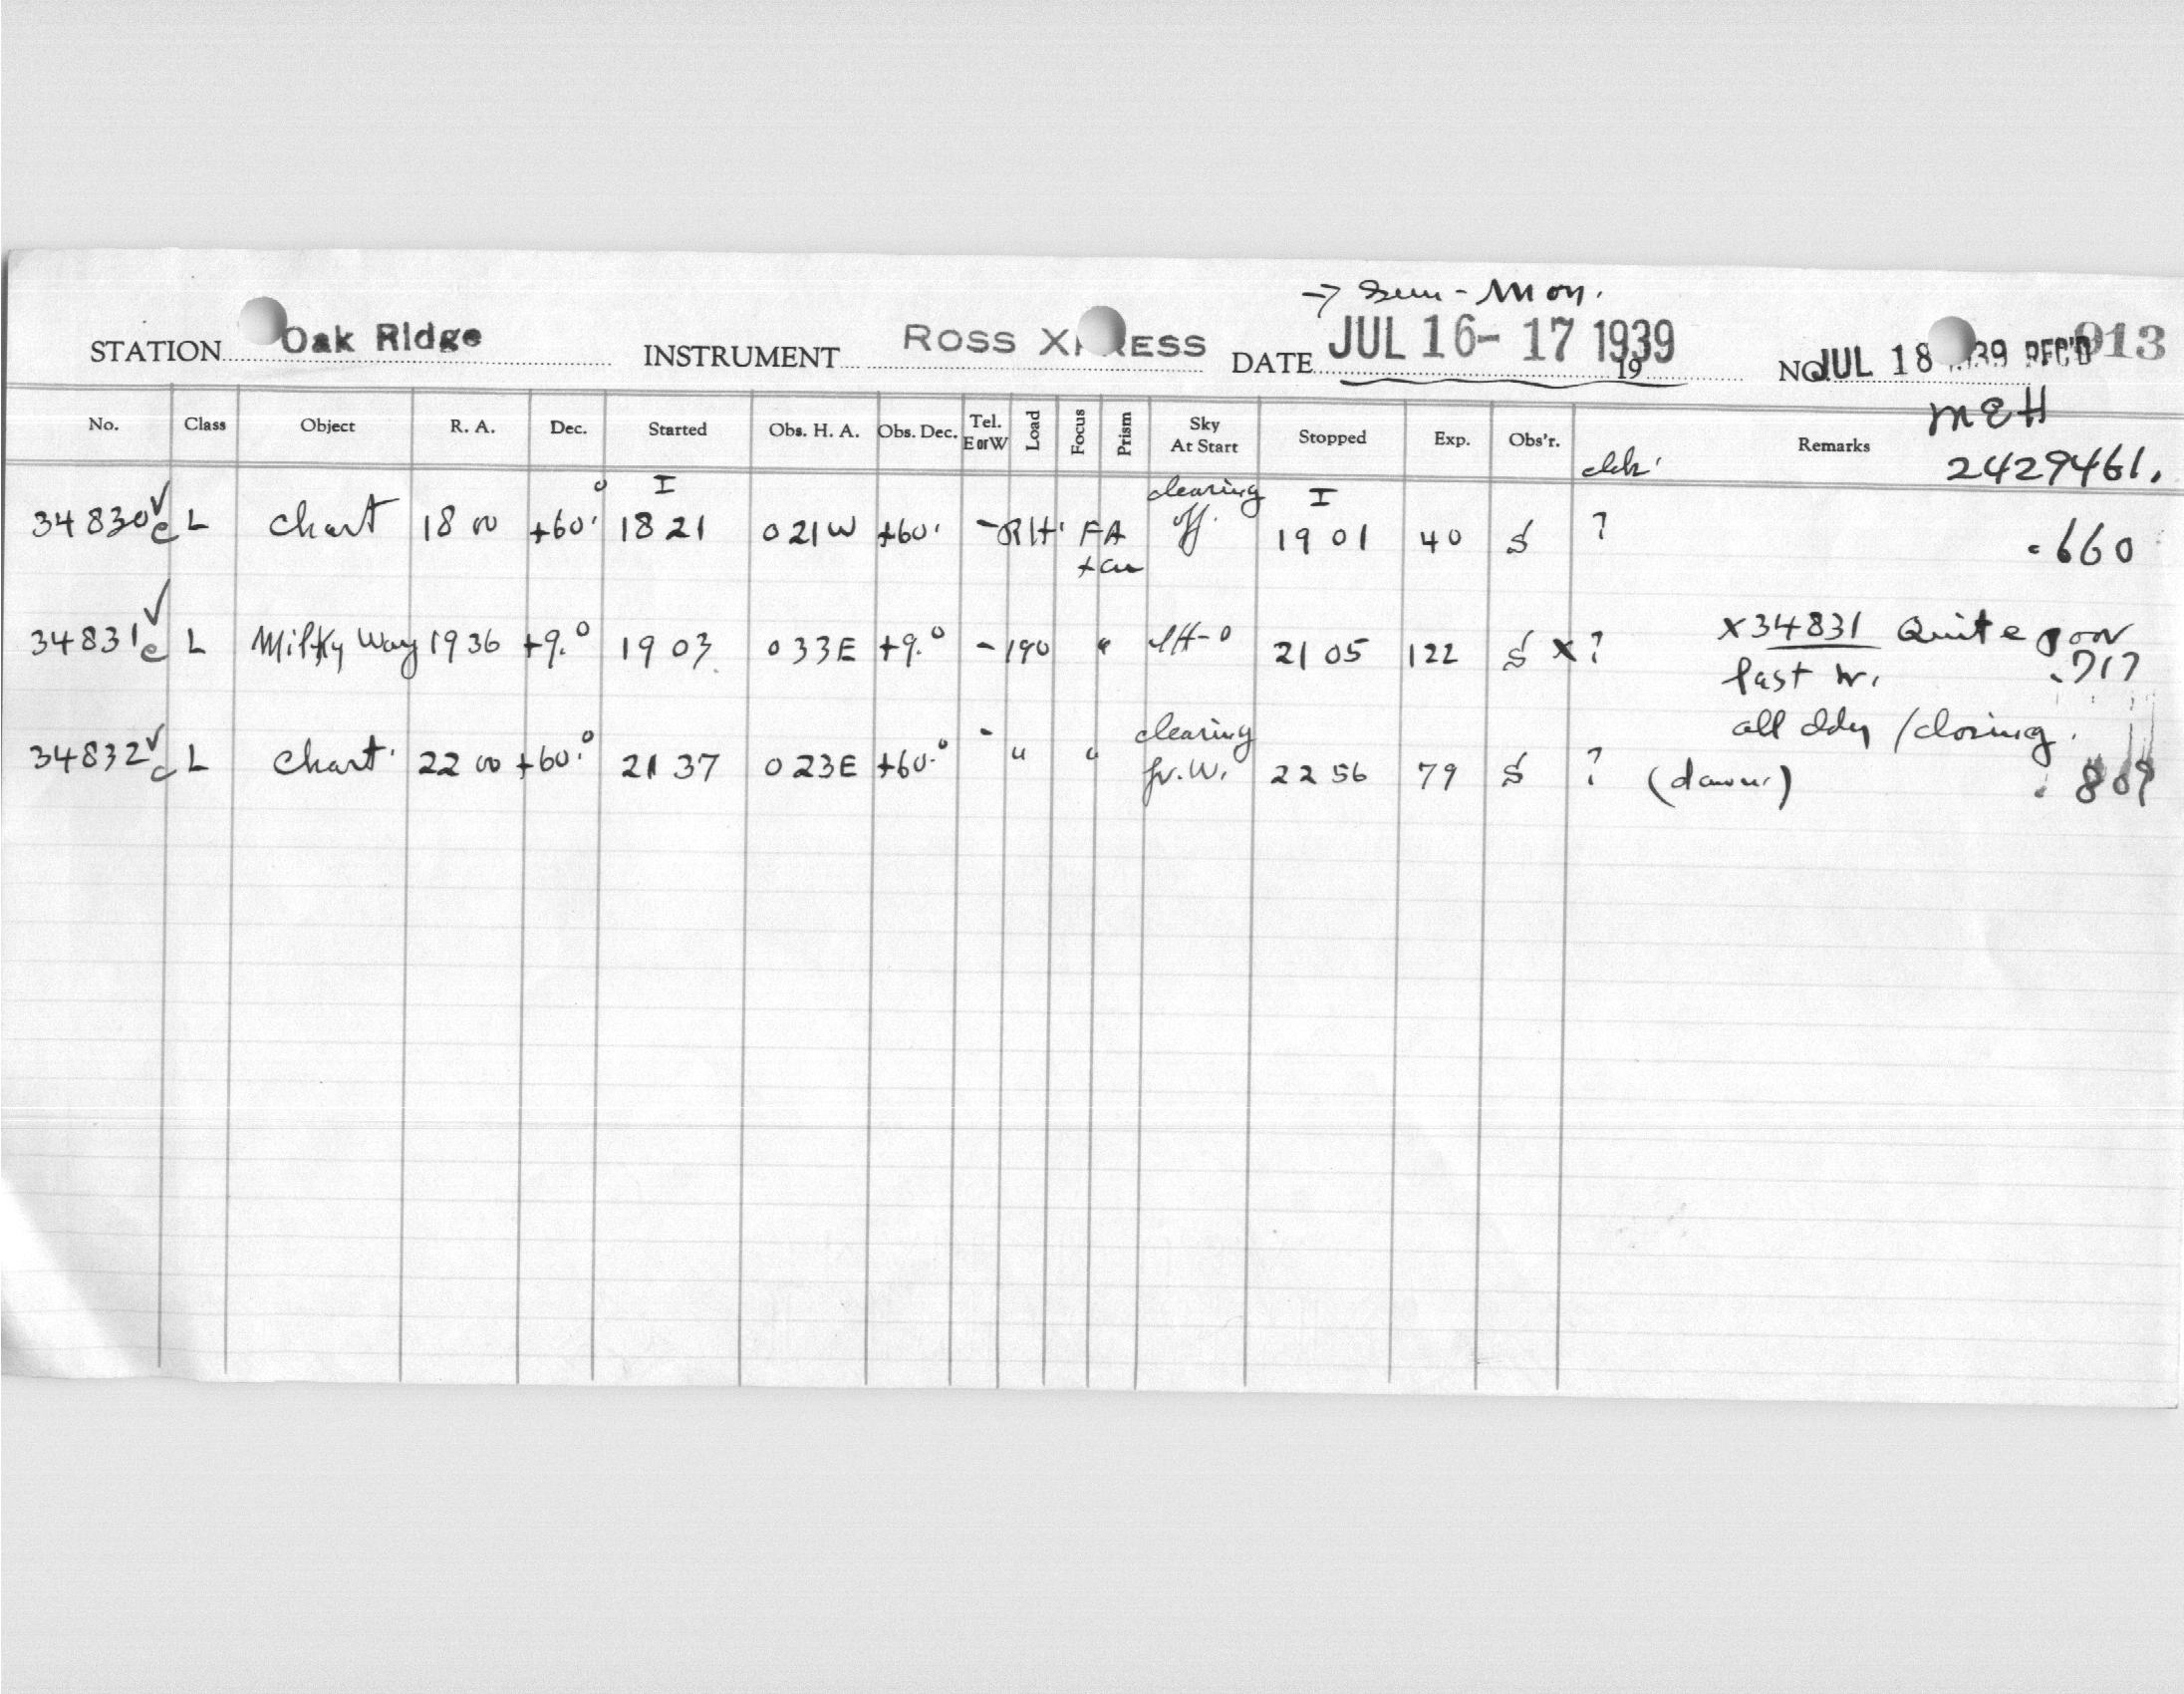 → Sun - Mon.
STATION Oak Ridge INSTRUMENT ROSS X ESS DATE JUL 16 - 17 1939 19 NO. JUL 18 39 REC'D 913
MEH
No. Class Object R. A. Dec. Started Obs. H. A. Obs. Dec. Tel. E or W Load Focus Prism Sky At Start Stopped Exp. Obs'r. Remarks
2429461.
34830 ✓ c L Chart 18 00 +60° I 18 21 0 21 W +60° - RH FA clearing off. I 19 01 40 S ? .660
34831 ✓ c L Milky Way 19 36 +9.° 19 03 0 33 E +9.° - 190 " 21 05 122 S x ? x34831 Quite poor
last hr. .717
all /closing.
34832 ✓ c L Chart 22 00 +60.° 21 37 0 23 E +60.° - " " clearing fr. W. 22 56 79 S ? (dawn) .809